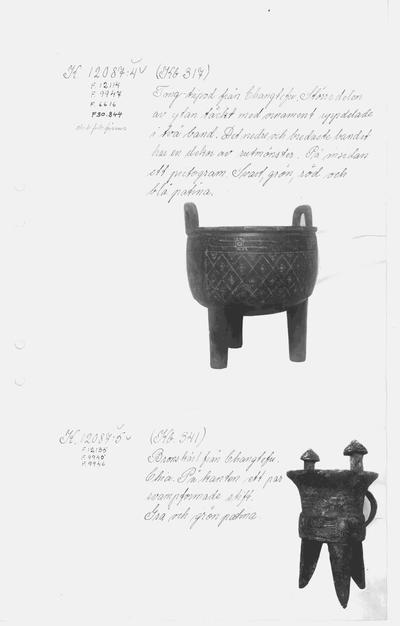 K. 12087:4 (Kb 317)
F. 12114
F. 9947
F. 6616
F30.844
Ting-tripod från Changtefu. Större delen
av ytan täckt med ornament uppdelade
i två band. Det nedre och bredaste bandet
har en dekor av rutmönster. På insidan
ett pictogram. Svart, grön, röd och
blå patina.
K. 12087:5 (Kb. 341)
F. 12135
F. 9945
F. 9946
Bronskärl från Changtefu.
Chia. På kanten ett par
svampformade stift.
Grå och grön patina.